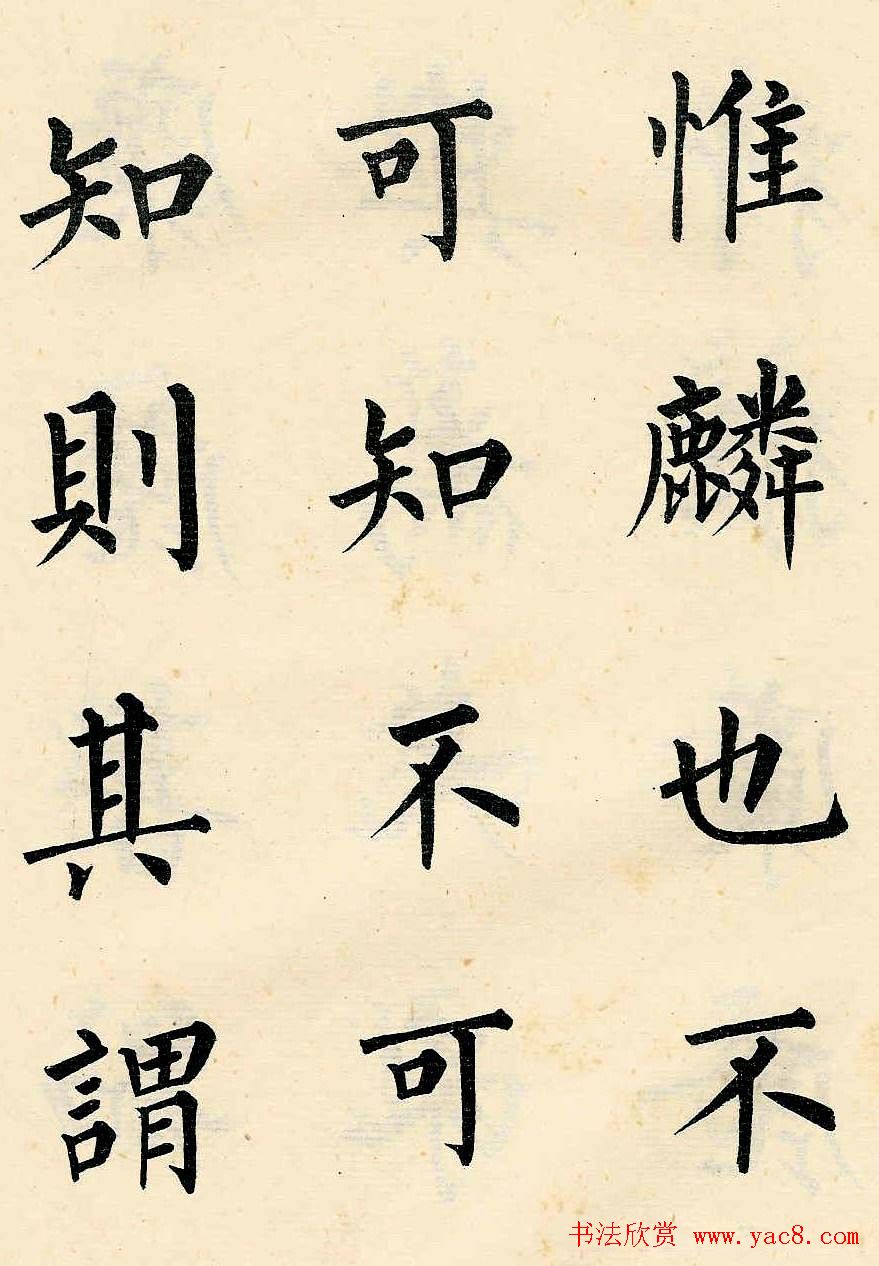 惟麟也不
可知不可
知則其謂
书法欣赏 www.yac8.com